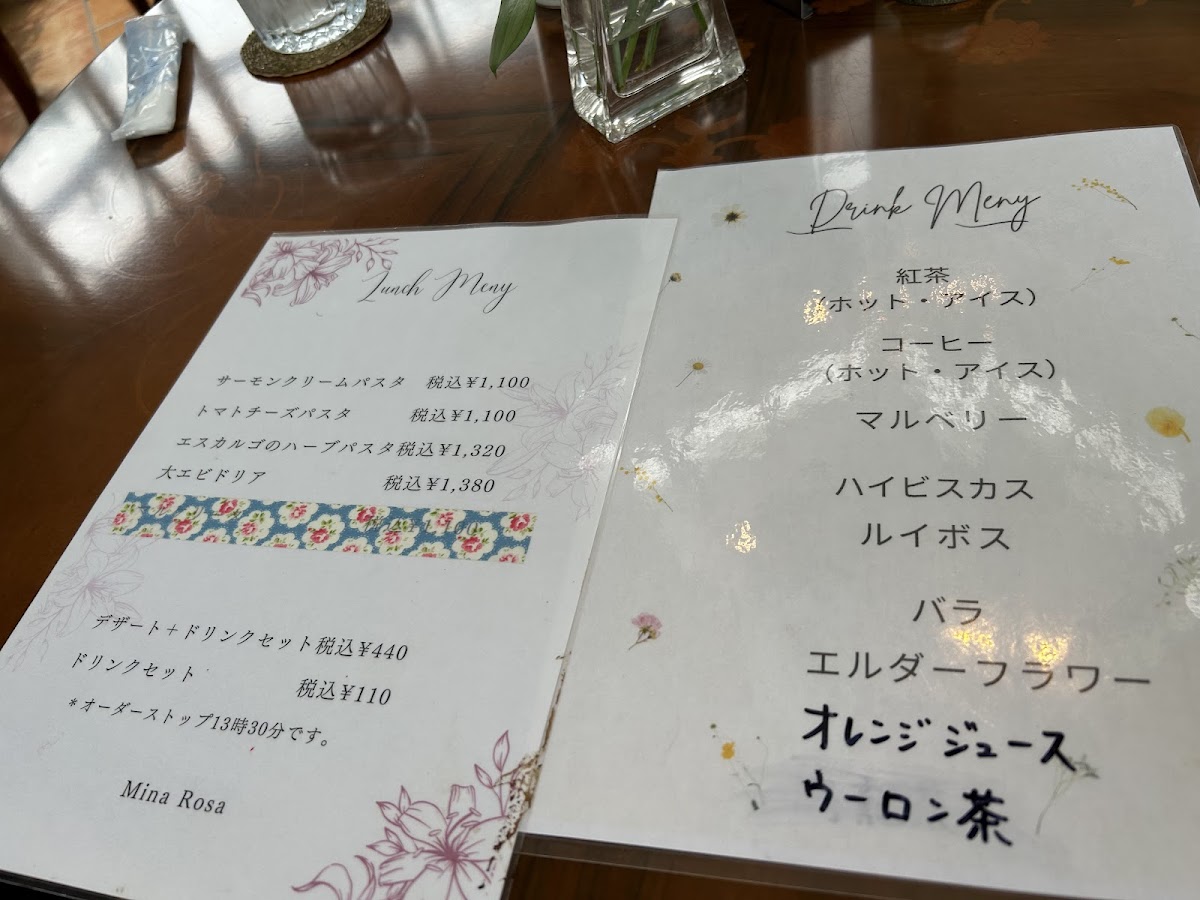 Lunch Meny
サーモンクリームパスタ 税込¥1,100
トマトチーズパスタ 税込¥1,100
エスカルゴのハーブパスタ税込¥1,320
大エビドリア 税込¥1,380
デザート＋ドリンクセット税込¥440
ドリンクセット 税込¥110
*オーダーストップ13時30分です。
Mina Rosa
Drink Meny
紅茶
（ホット・アイス）
コーヒー
（ホット・アイス）
マルベリー
ハイビスカス
ルイボス
バラ
エルダーフラワー
オレンジジュース
ウーロン茶